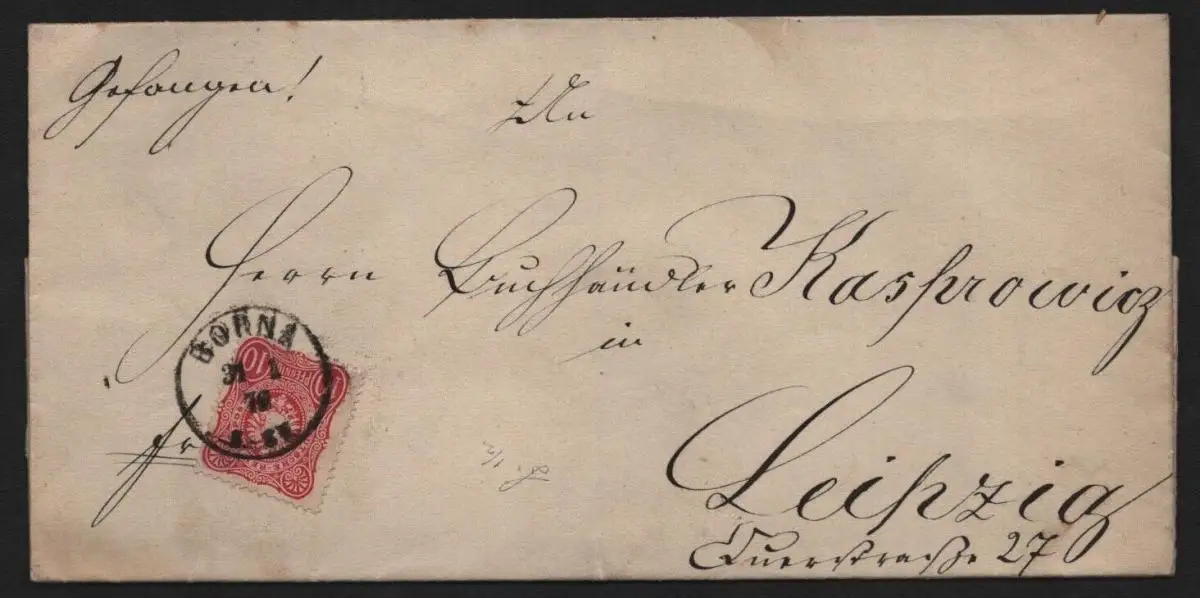 Gefangen!
An
Herrn Buchhändler Kasprowicz
in
Leipzig
Querstraße 27
fr
BORNA
31 1
76
10